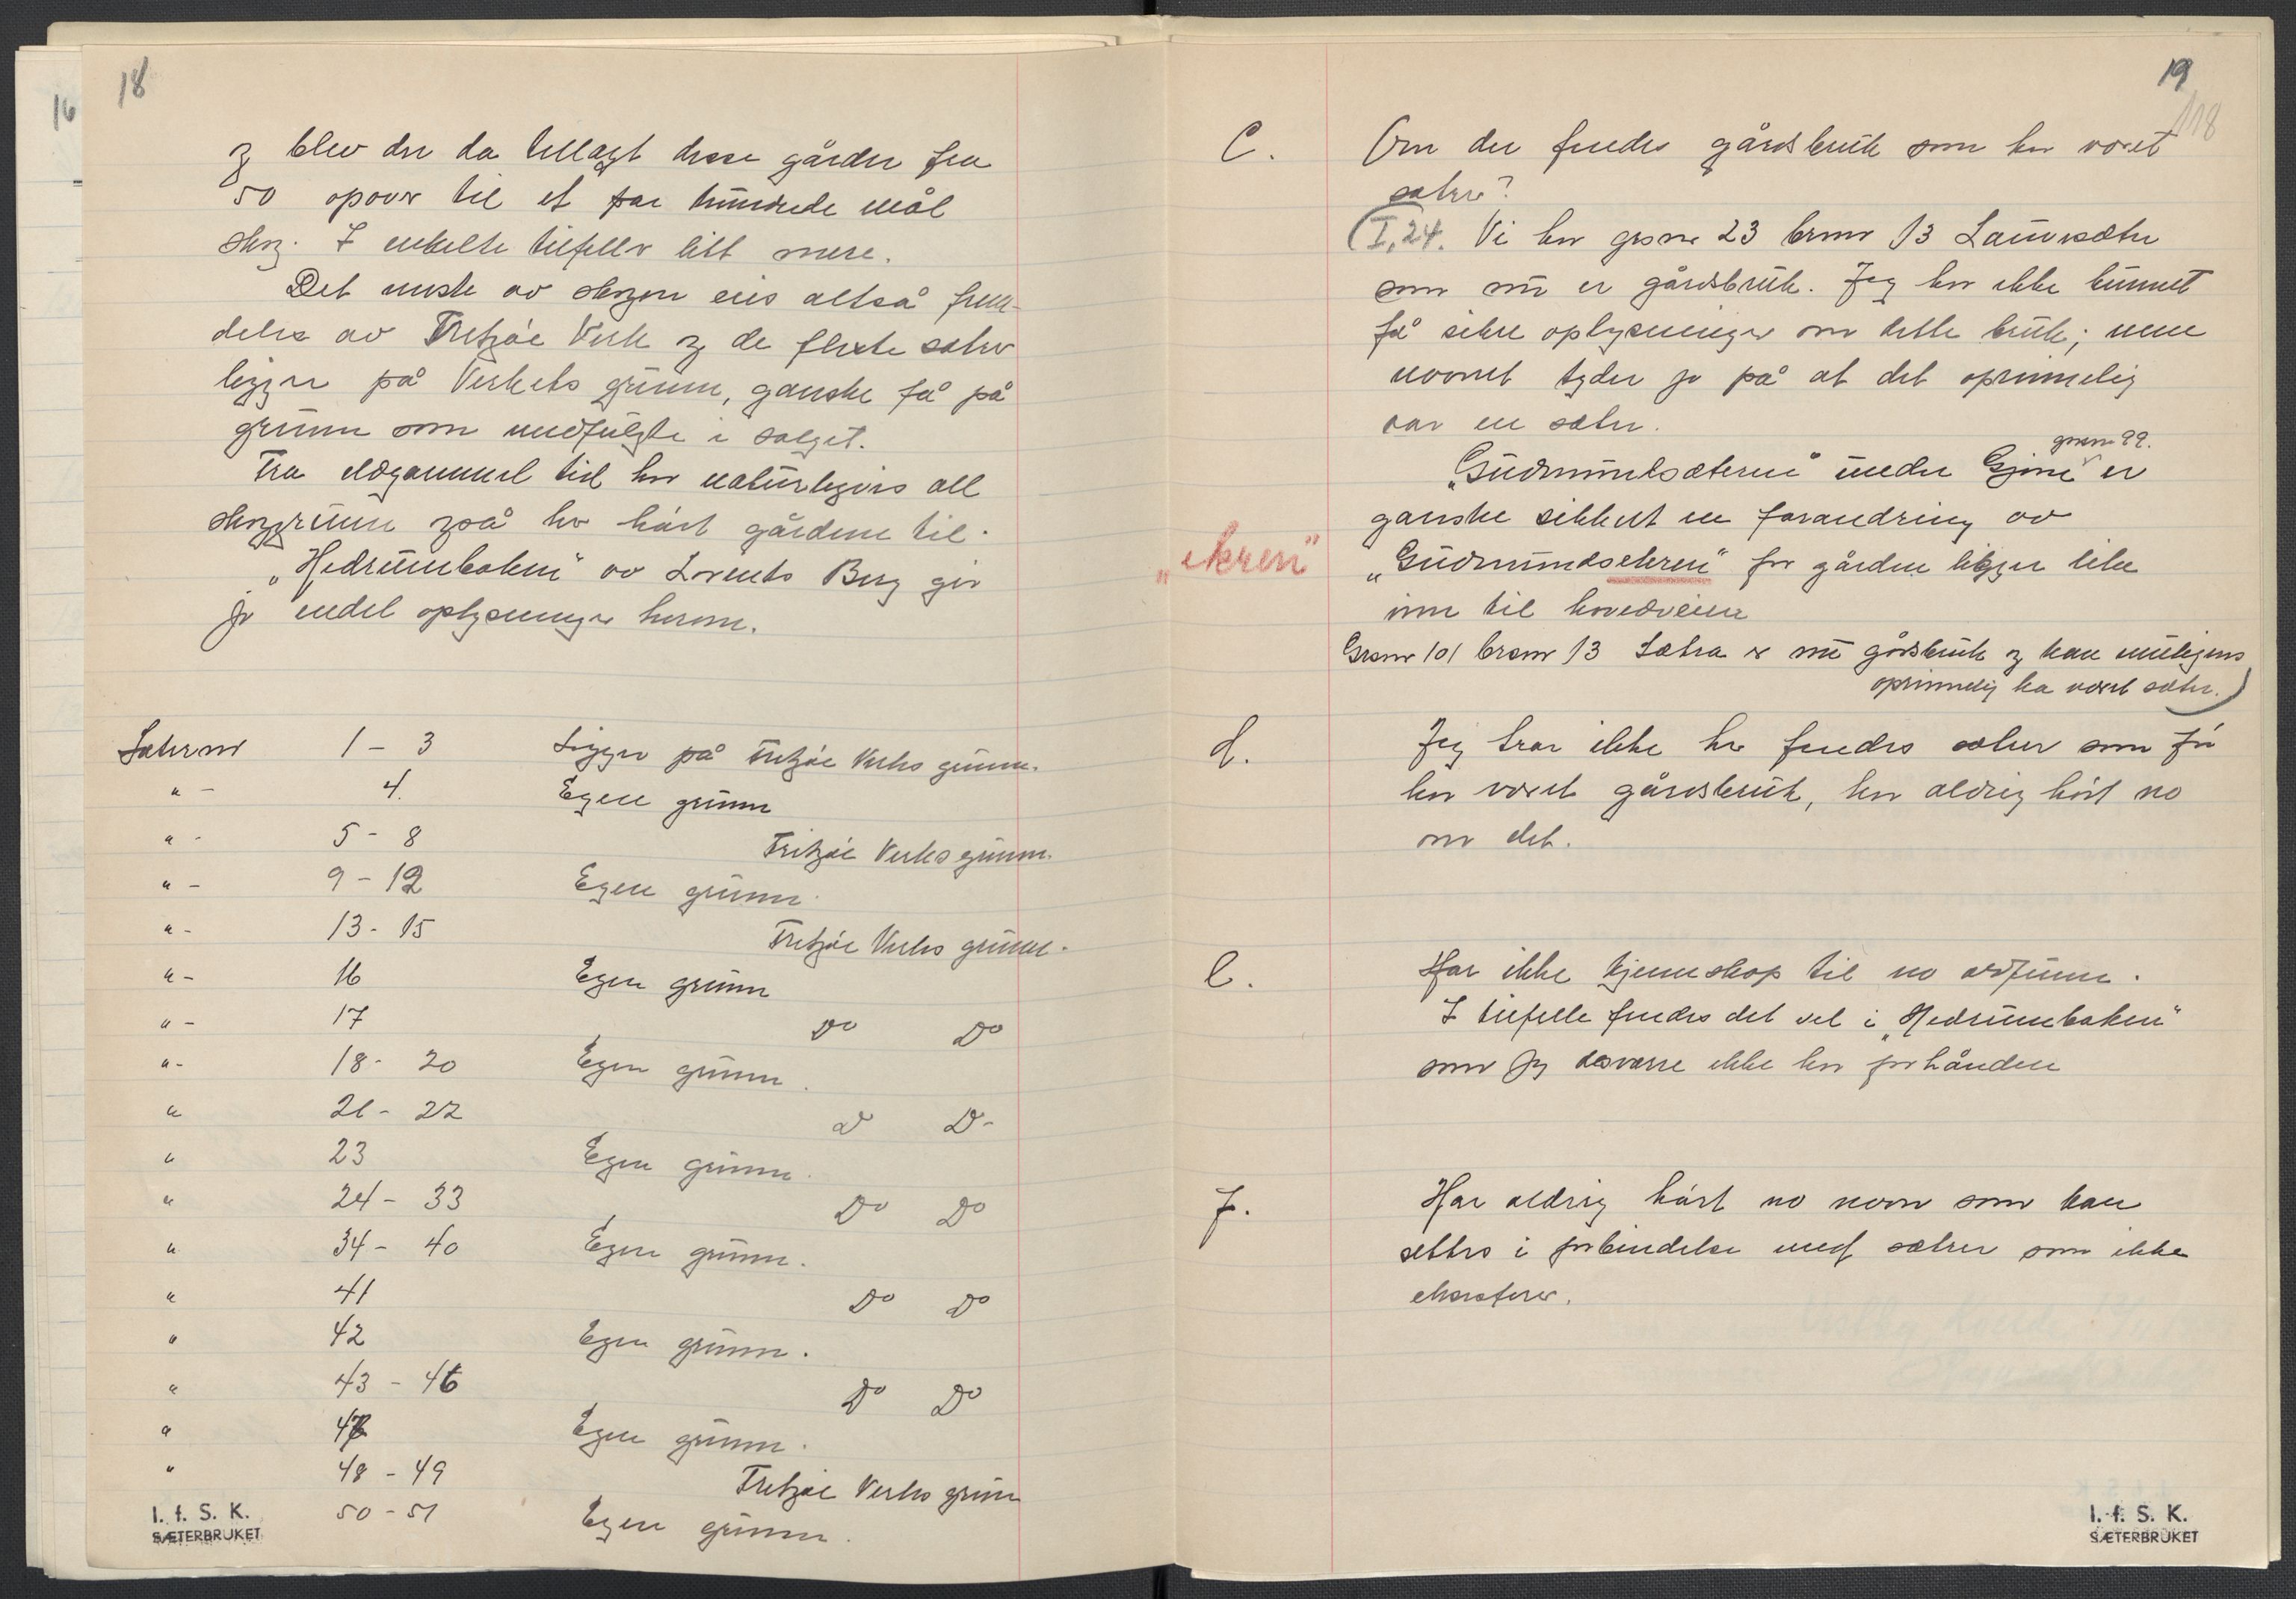 16
18
og blev der da tillagt disse gårder fra
50 opover til et par hundrede mål
skog. I enkelte tilfeller litt mere.
Det meste av skogen eies altså frem-
deles av Fritzøe Verk og de fleste sætre
ligger på Verkets grunn, ganske få på
grunn som medfulgte i salget.
Fra eldgammel tid har naturligvis all
skoggrunn også her hørt gårdene til.
„Hedrumboken" av Lorents Berg gir
jo endel oplysninger herom.
Sæter nr 1 - 3 Ligger på Fritzøe Verks grunn.
" - 4. Egen grunn
" - 5 - 8 Fritzøe Verks grunn.
" - 9 - 12 Egen grunn.
" - 13 - 15 Fritzøe Verks grunn.
" - 16 Egen grunn
" - 17 Do Do
" - 18 - 20 Egen grunn.
" 21 - 22 D D-
" 23 Egen grunn.
" 24 - 33 Do Do
" 34 - 40 Egen grunn.
" 41 Do Do
" 42 Egen grunn.
" 43 - 46 Do Do
" 47 Egen grunn.
" 48 - 49 Fritzøe Verks grunn
50 - 51 Egen grunn.
I. f. S. K.
SÆTERBRUKET
19
118
C. Om der findes gårdsbruk som har været
sætre?
(I, 24. Vi har grsnr 23 brnr 13 Lauvsæter
som nu er gårdsbruk. Jeg har ikke kunnet
få sikre oplysninger om dette bruk; men
navnet tyder jo på at det oprinnelig
var en sæter.
grsnr 99.
„Gudmundsæteren" under Gjone er
ganske sikkert en forandring av
„ekren" „Gudmundsekren" for gården ligger like
inn til hovedveien
Grsnr 101 brsnr 13 Sætra er nu gårdsbruk og kan muligens
oprinnelig ha været sæter.)
d. Jeg tror ikke her findes sætre som før
har været gårdsbruk, har aldrig hørt no
om det.
e. Har ikke kjennskap til no ordfunn.
I tilfelle findes det vel i „Hedrumboken"
som jeg desværre ikke har for hånden
f. Har aldrig hørt no navn som kan
settes i forbindelse med sætrer som ikke
eksisterer.
I. f. S. K.
SÆTERBRUKET